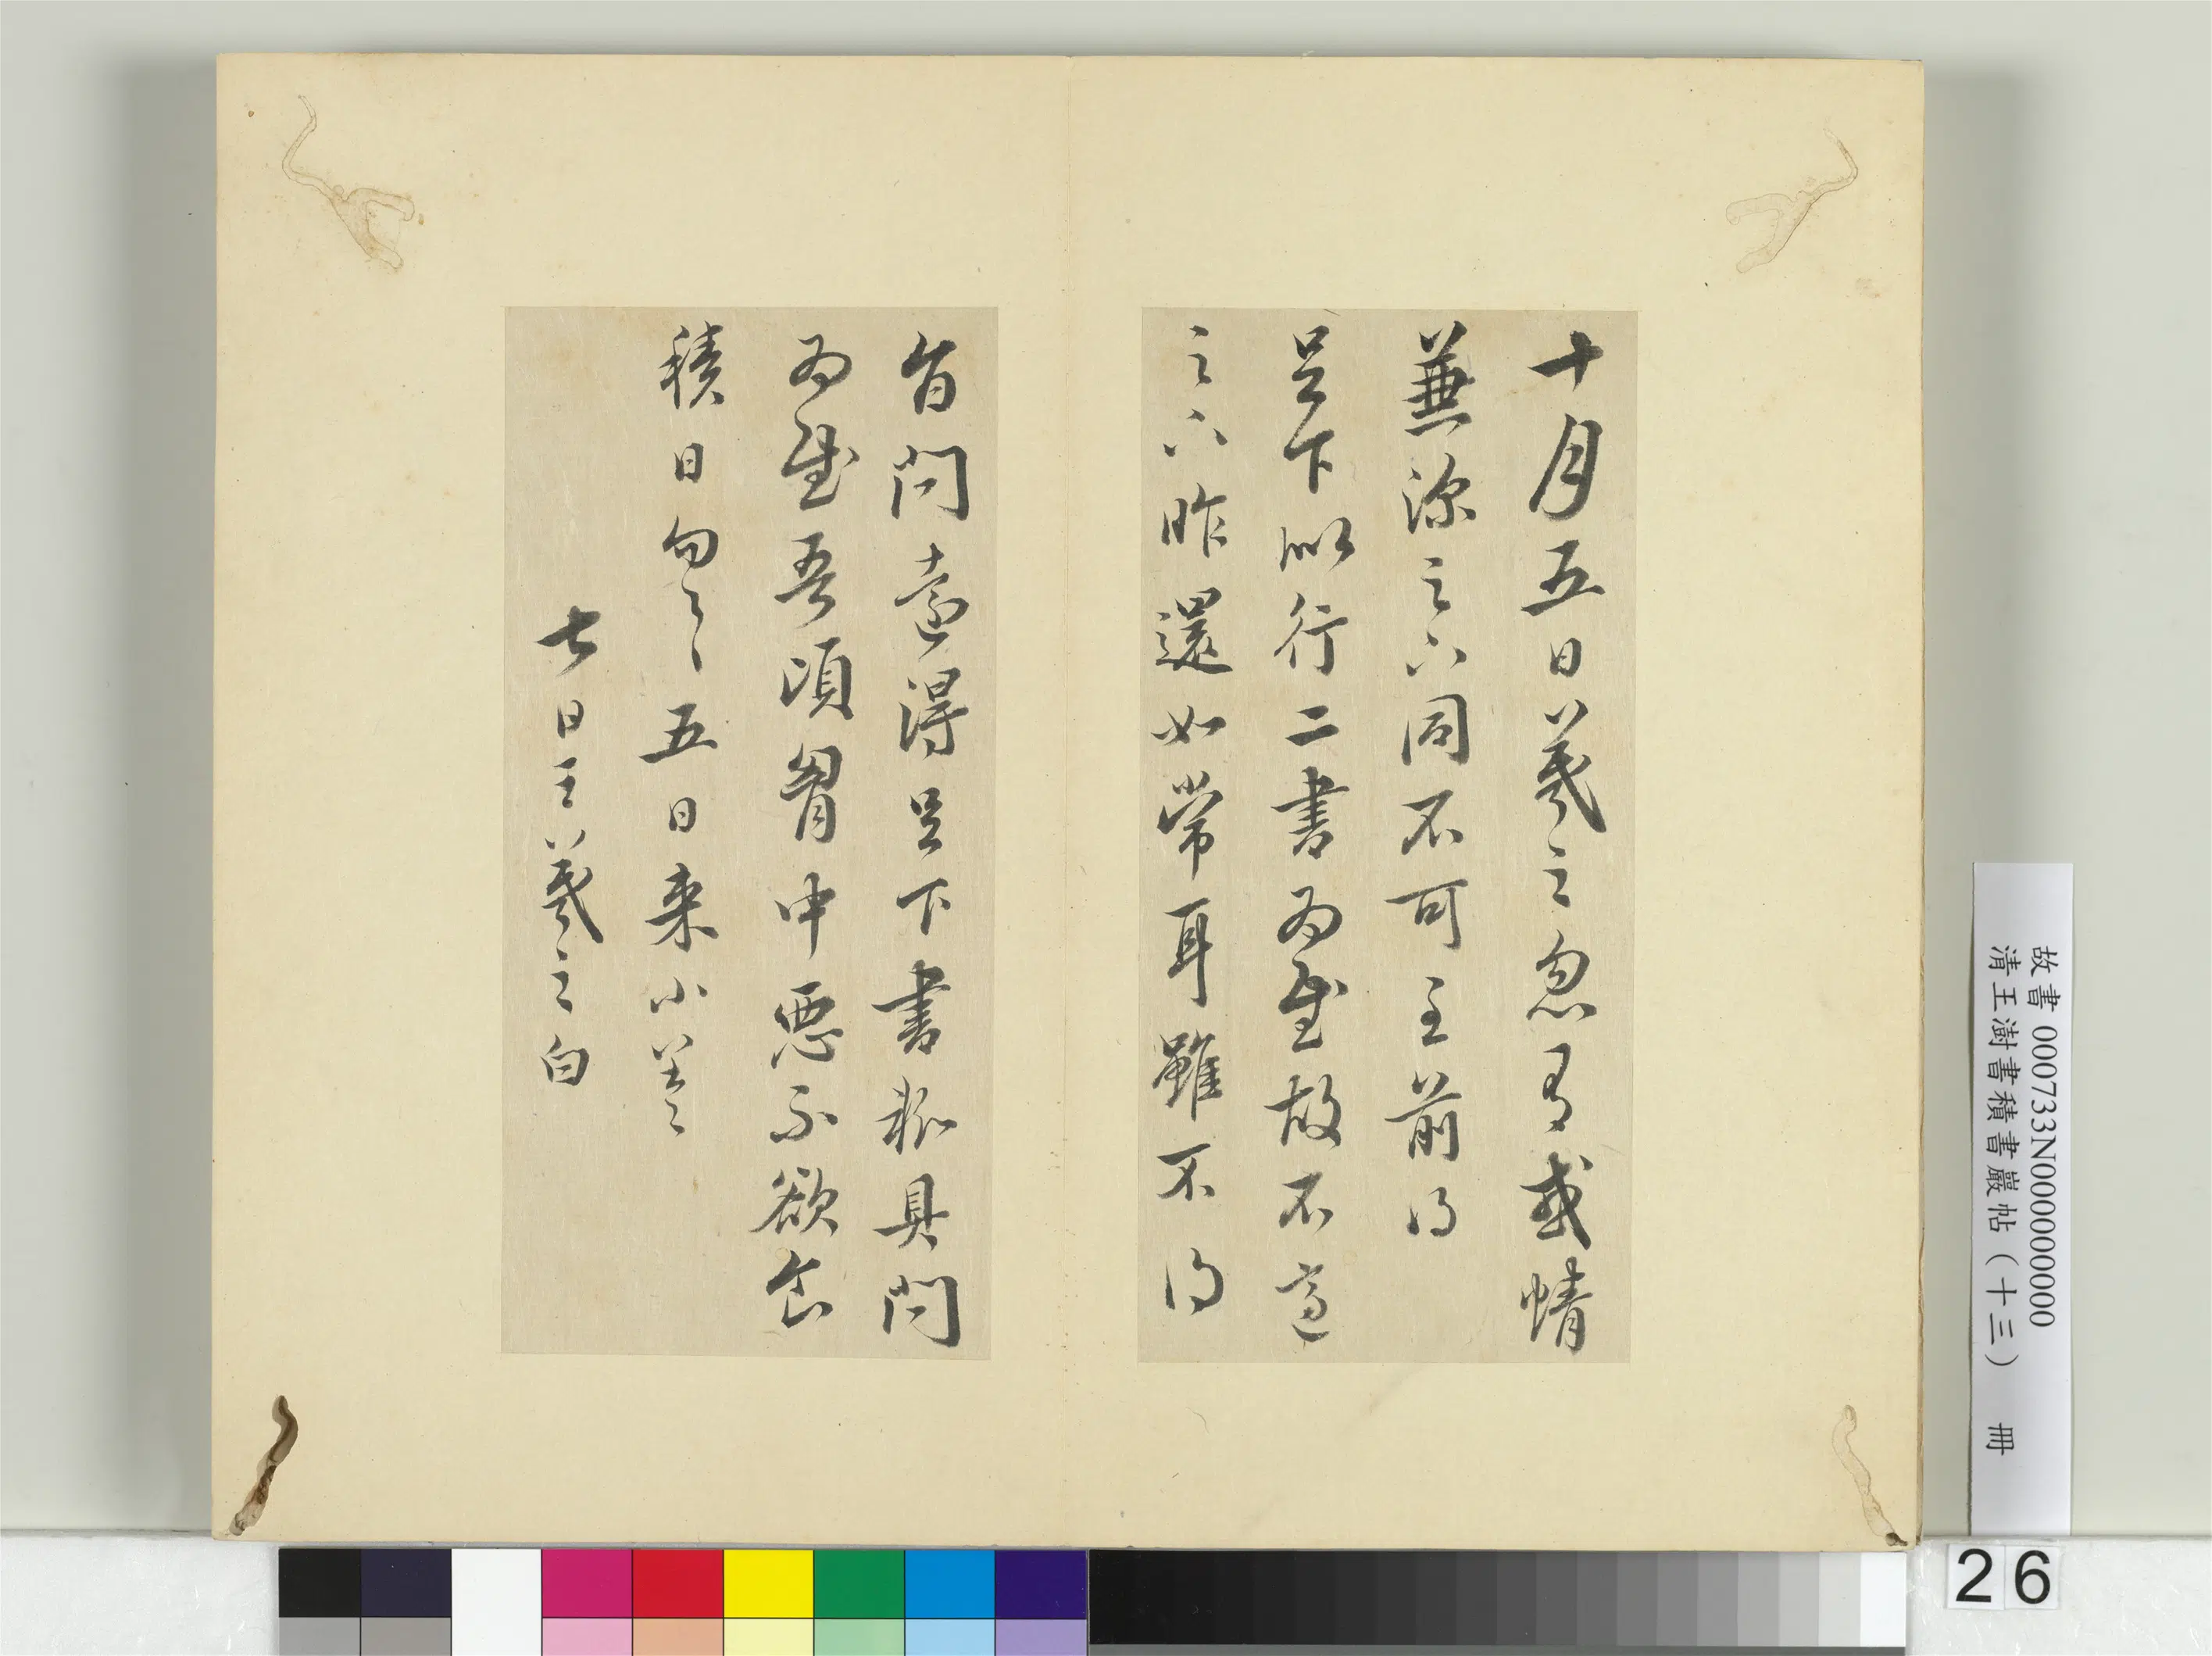 十月五日羲之忽有感情
兼深之六同不可言前得
足下似行二書為慰故不適
之六昨還如常耳雖不得
旨問壹得足下書粗具問
為慰吾頃胷中惡不欲食
積日勿勿五日来小差
七日王羲之白
故書 000733N000000000
清王澍書積書巖帖（十三） 冊
26